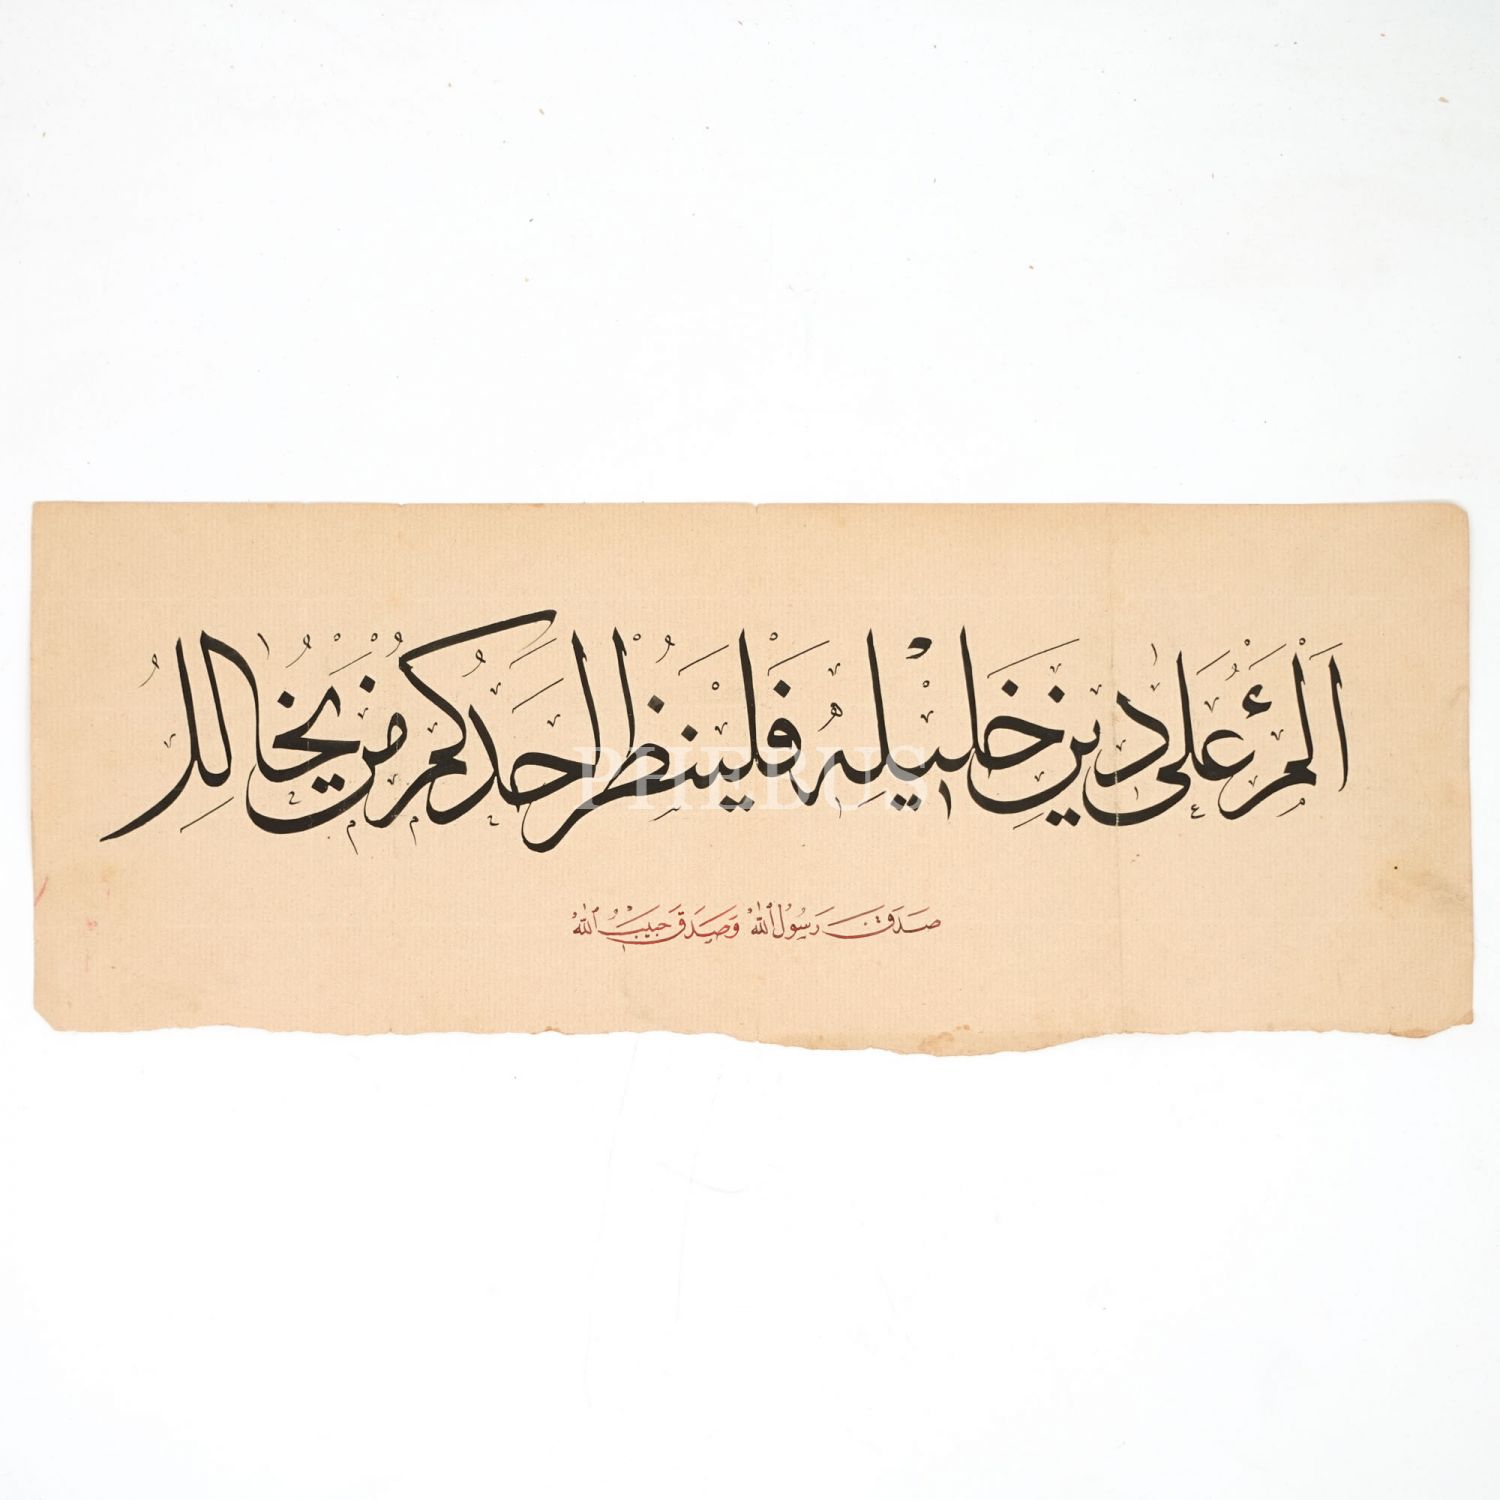 اَلْمَرْءُ عَلَى دِينِ خَلِيلِهِ فَلْيَنْظُرْ اَحَدُكُمْ مَنْ يُخَالِلُ
صَدَقَ رَسُولُ اللّٰهِ وَصَدَقَ حَبِيبُ اللّٰهِ
PHEBUS